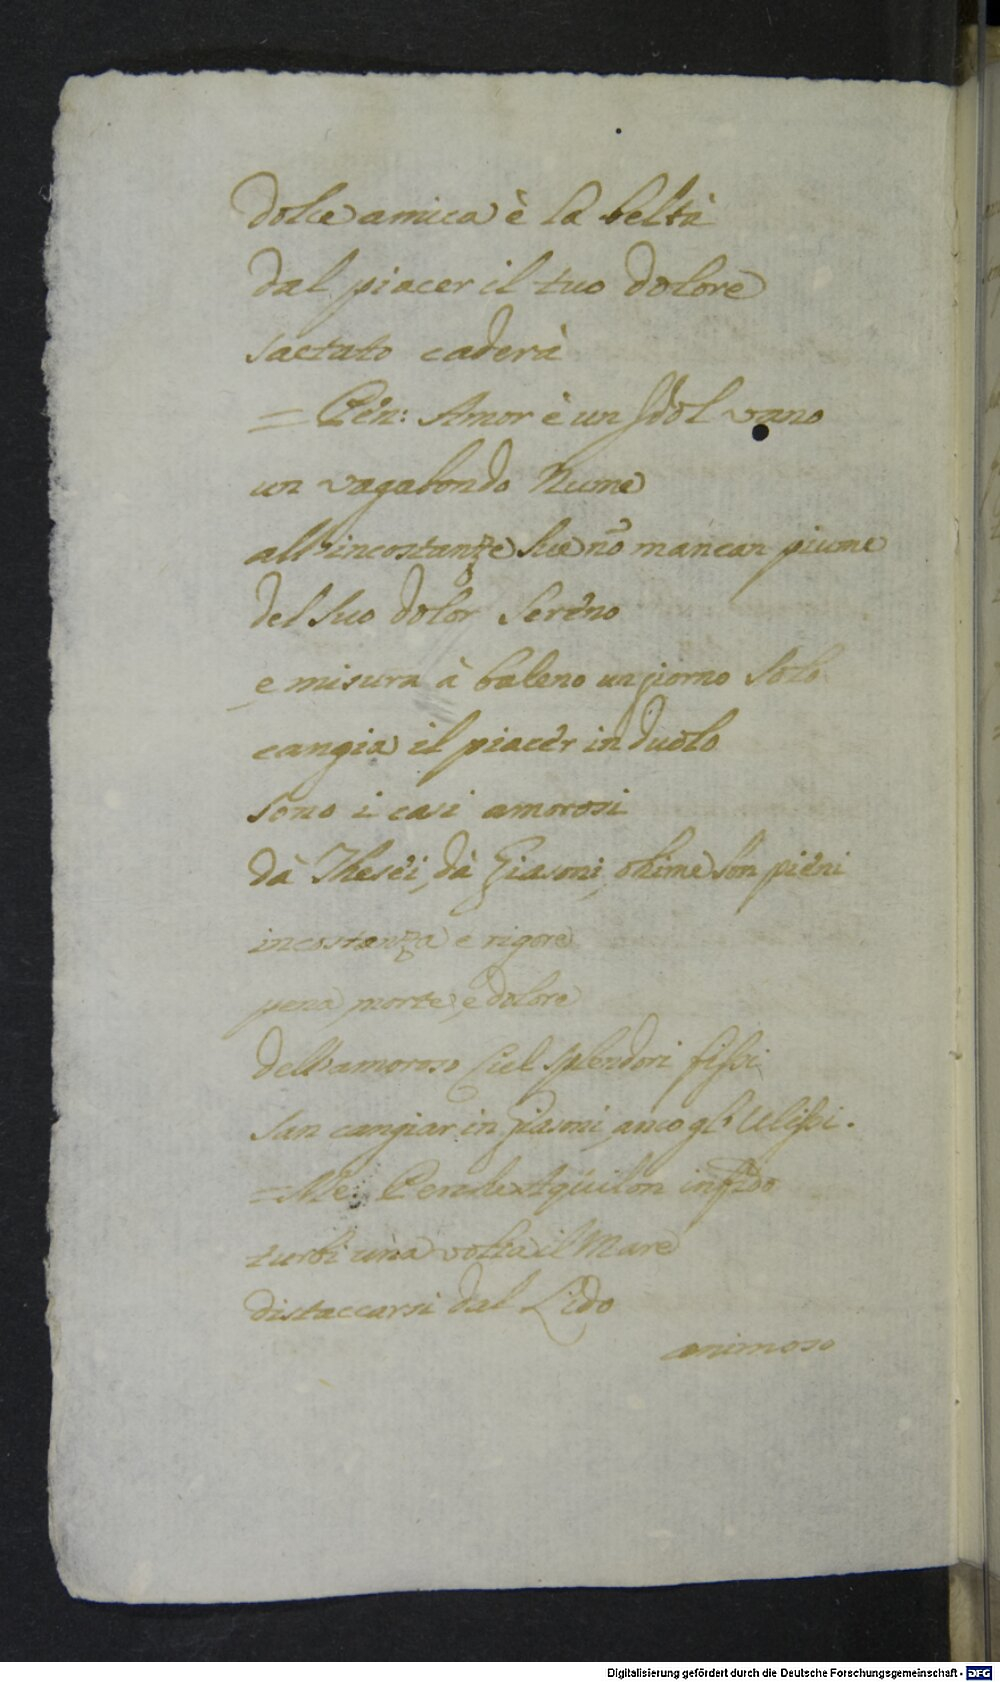 dolce amica è la beltà
dal piacer il tuo dolore
saettato caderà
= Pen: Amor è un Idol vano
un vagabondo Nume
all'incostanze sue nõ mancan piume
del suo dolor sereno
e misura à baleno un giorno solo
cangia il piacer in duolo
sono i casi amorosi
dà Theséi, dà Giasoni, ohime son pieni
incostanza e rigore
pena, morte, e dolore
dell'amoroso Ciel splendori fissi
san cangiar in Giasoni, anco gl' Ulissi.
= Me: Perche Aquilon infido
turbi una volta il Mare
distaccarsi dal Lido
animoso
Digitalisierung gefördert durch die Deutsche Forschungsgemeinschaft - DFG